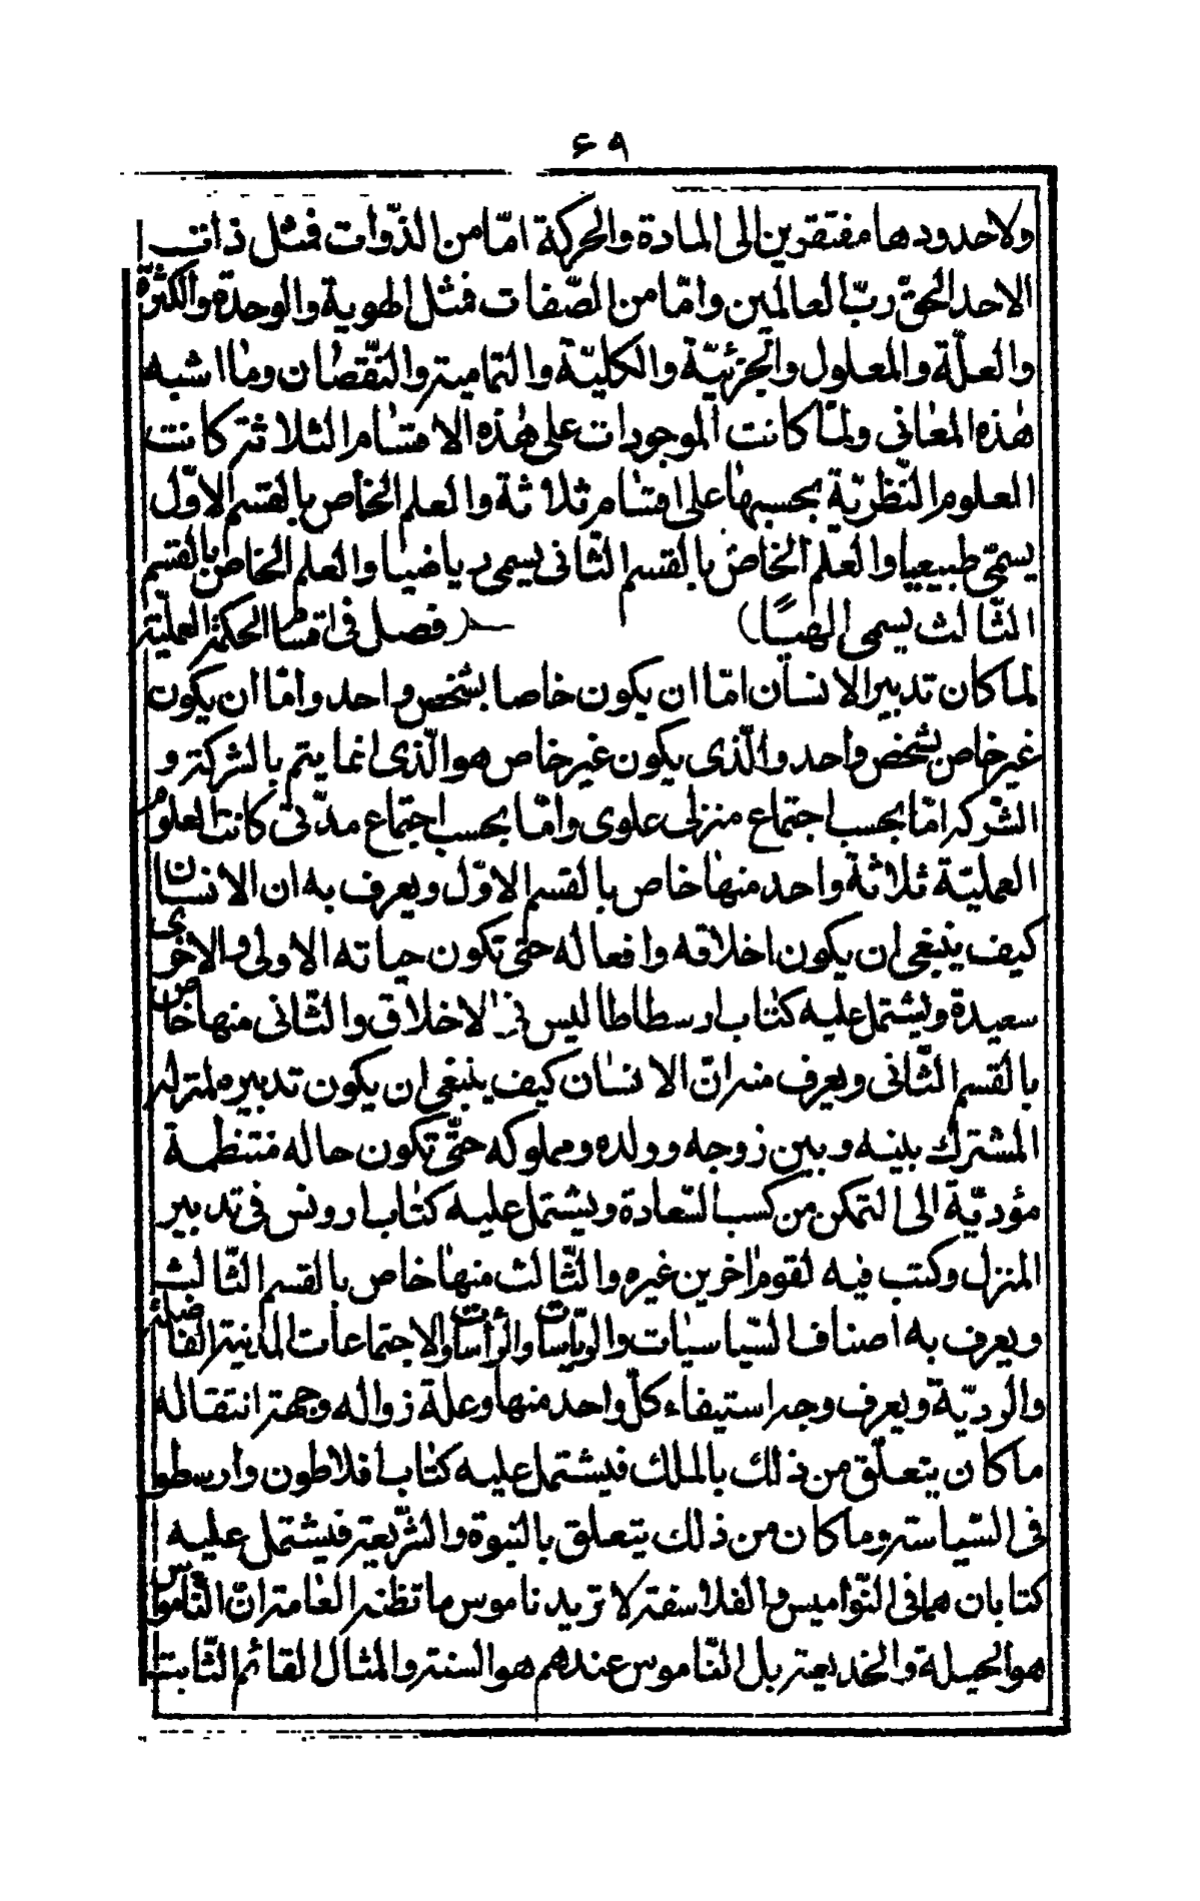 ۶۹
ولا حدودها مفتقرين الى المادة والحركة امّا من الذّوات فمثل ذات
الاحد الحقّ ربّ العالمين وامّا من الصّفات فمثل الهوية والوحدة والكثرة
والعلّة والمعلول والجزئيّة والكليّة والتمامية والنّقصان وما اشبه
هذه المعانى ولمّا كانت الموجودات على هذه الاقسام الثلاثة كانت
العلوم النّظريّة بحسبها على اقسام ثلاثة والعلم الخاص بالقسم الاوّل
يسمّى طبيعيا والعلم الخاص بالقسم الثّانى يسمى رياضيا والعلم الخاص بالقسم
الثّالث يسمى الهيًا) (فصل فى اقسام الحكمة العمليّة
لما كان تدبير الانسان امّا ان يكون خاصا بشخص واحد وامّا ان يكون
غير خاص بشخص واحد والّذى يكون غير خاص هو الّذى انما يتم بالشركة و
الشركة امّا بحسب اجتماع منزلى علوى وامّا بحسب اجتماع مدنّى كانت العلوم
العمليّة ثلاثة واحد منها خاص بالقسم الاوّل ويعرف به ان الانسان
كيف ينبغى ان يكون اخلاقه وافعاله حتّى تكون حياته الاولى والاخرى
سعيدة ويشتمل عليه كتاب ارسطاطاليس فى الاخلاق والثّانى منها خاص
بالقسم الثّانى ويعرف منه انّ الانسان كيف ينبغى ان يكون تدبيره لمنزله
المشترك بينه وبين زوجه وولده ومملوكه حتّى تكون حاله منتظمة
مؤديّة الى التمكن من كسب السّعادة ويشتمل عليه كتاب ارونس فى تدبير
المنزل وكتب فيه لقوم اخرين غيره والثّالث منها خاص بالقسم الثّالث
ويعرف به اصناف السّياسيات والريّاسات والرّأسات والاجتماعات المدنية الفاضلة
والرديّة ويعرف وجه استيفاء كلّ واحد منها وعلة زواله وجهة انتقاله
ما كان يتعلّق من ذلك بالملك فيشتمل عليه كتاب افلاطون وارسطو
فى السّياسة وما كان من ذلك يتعلق بالنبوة والشّريعة فيشتمل عليه
كتابان هما فى النّواميس والفلاسفة لا تريد ناموس ما تظنه العامة انّ النّاموس
هو الحيلة والخديعة بل النّاموس عندهم هو السنة والمثال القائم الثّابت